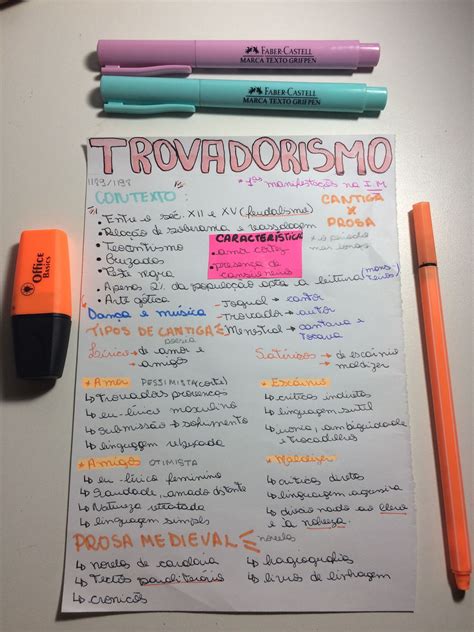 FABER-CASTELL
MARCA TEXTO GRIFPEN
FABER-CASTELL
MARCA TEXTO GRIFPEN
TROVADORISMO
1189/1198
*1ªs manifestações na I.M
CONTEXTO:
CANTIGA
X
PROSA
• Entre o séc. XII e XV (feudalismo)
• Relação de suserania e vassalagem
• Teocentrismo
• Cruzadas
• Peste negra
• Apenas 2% da população apta a leitura
• Arte gótica
CARACTERÍSTICA
• amor cortez
• presença do
Dança e música
→ Jogral → cantor
→ Trovador → autor
→ Menestrel → cantava e
tocava
TIPOS DE CANTIGA
poesia
Lírica → de amor e
→ amigos
Satíricas → de escárnio
→ maldizer
* Amor PESSIMISTA (corte)
↳ Trovadores provençais
↳ eu-lírico masculino
↳ submissão + sofrimento
↳ linguagem rebuscada
* Escárnio
↳ críticas indiretas
↳ linguagem sutil
↳ ironia, ambiguidade
e trocadilhos
* Amigos OTIMISTA
↳ eu-lírico feminino
↳ Saudade, amado distante
↳ Natureza retratada
↳ linguagem simples
* Maldizer
↳ críticas diretas
↳ linguagem agressiva
↳ direcionado ao clero
e à nobreza
PROSA MEDIEVAL
novelas
↳ novelas de cavalaria
↳ Textos paraliterários
↳ crônicas
↳ hagiografias
↳ livros de linhagem
Office
Basics